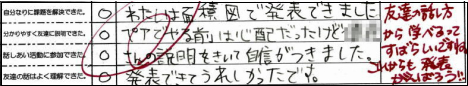 自分なりに課題を解決できた。 ○ わたしは面積図で発表できました
分かりやすく友達に説明できた。 ○ ペアでやる前は心配だったけど
話しあい活動に参加できた。 ○ さんの説明をきいて自信がつきました。
友達の話はよく理解できた。 ○ 発表できてうれしかったです。
友達の話し方
から学べるって
すばらしいですね。
これからも発表
がんばろう!!